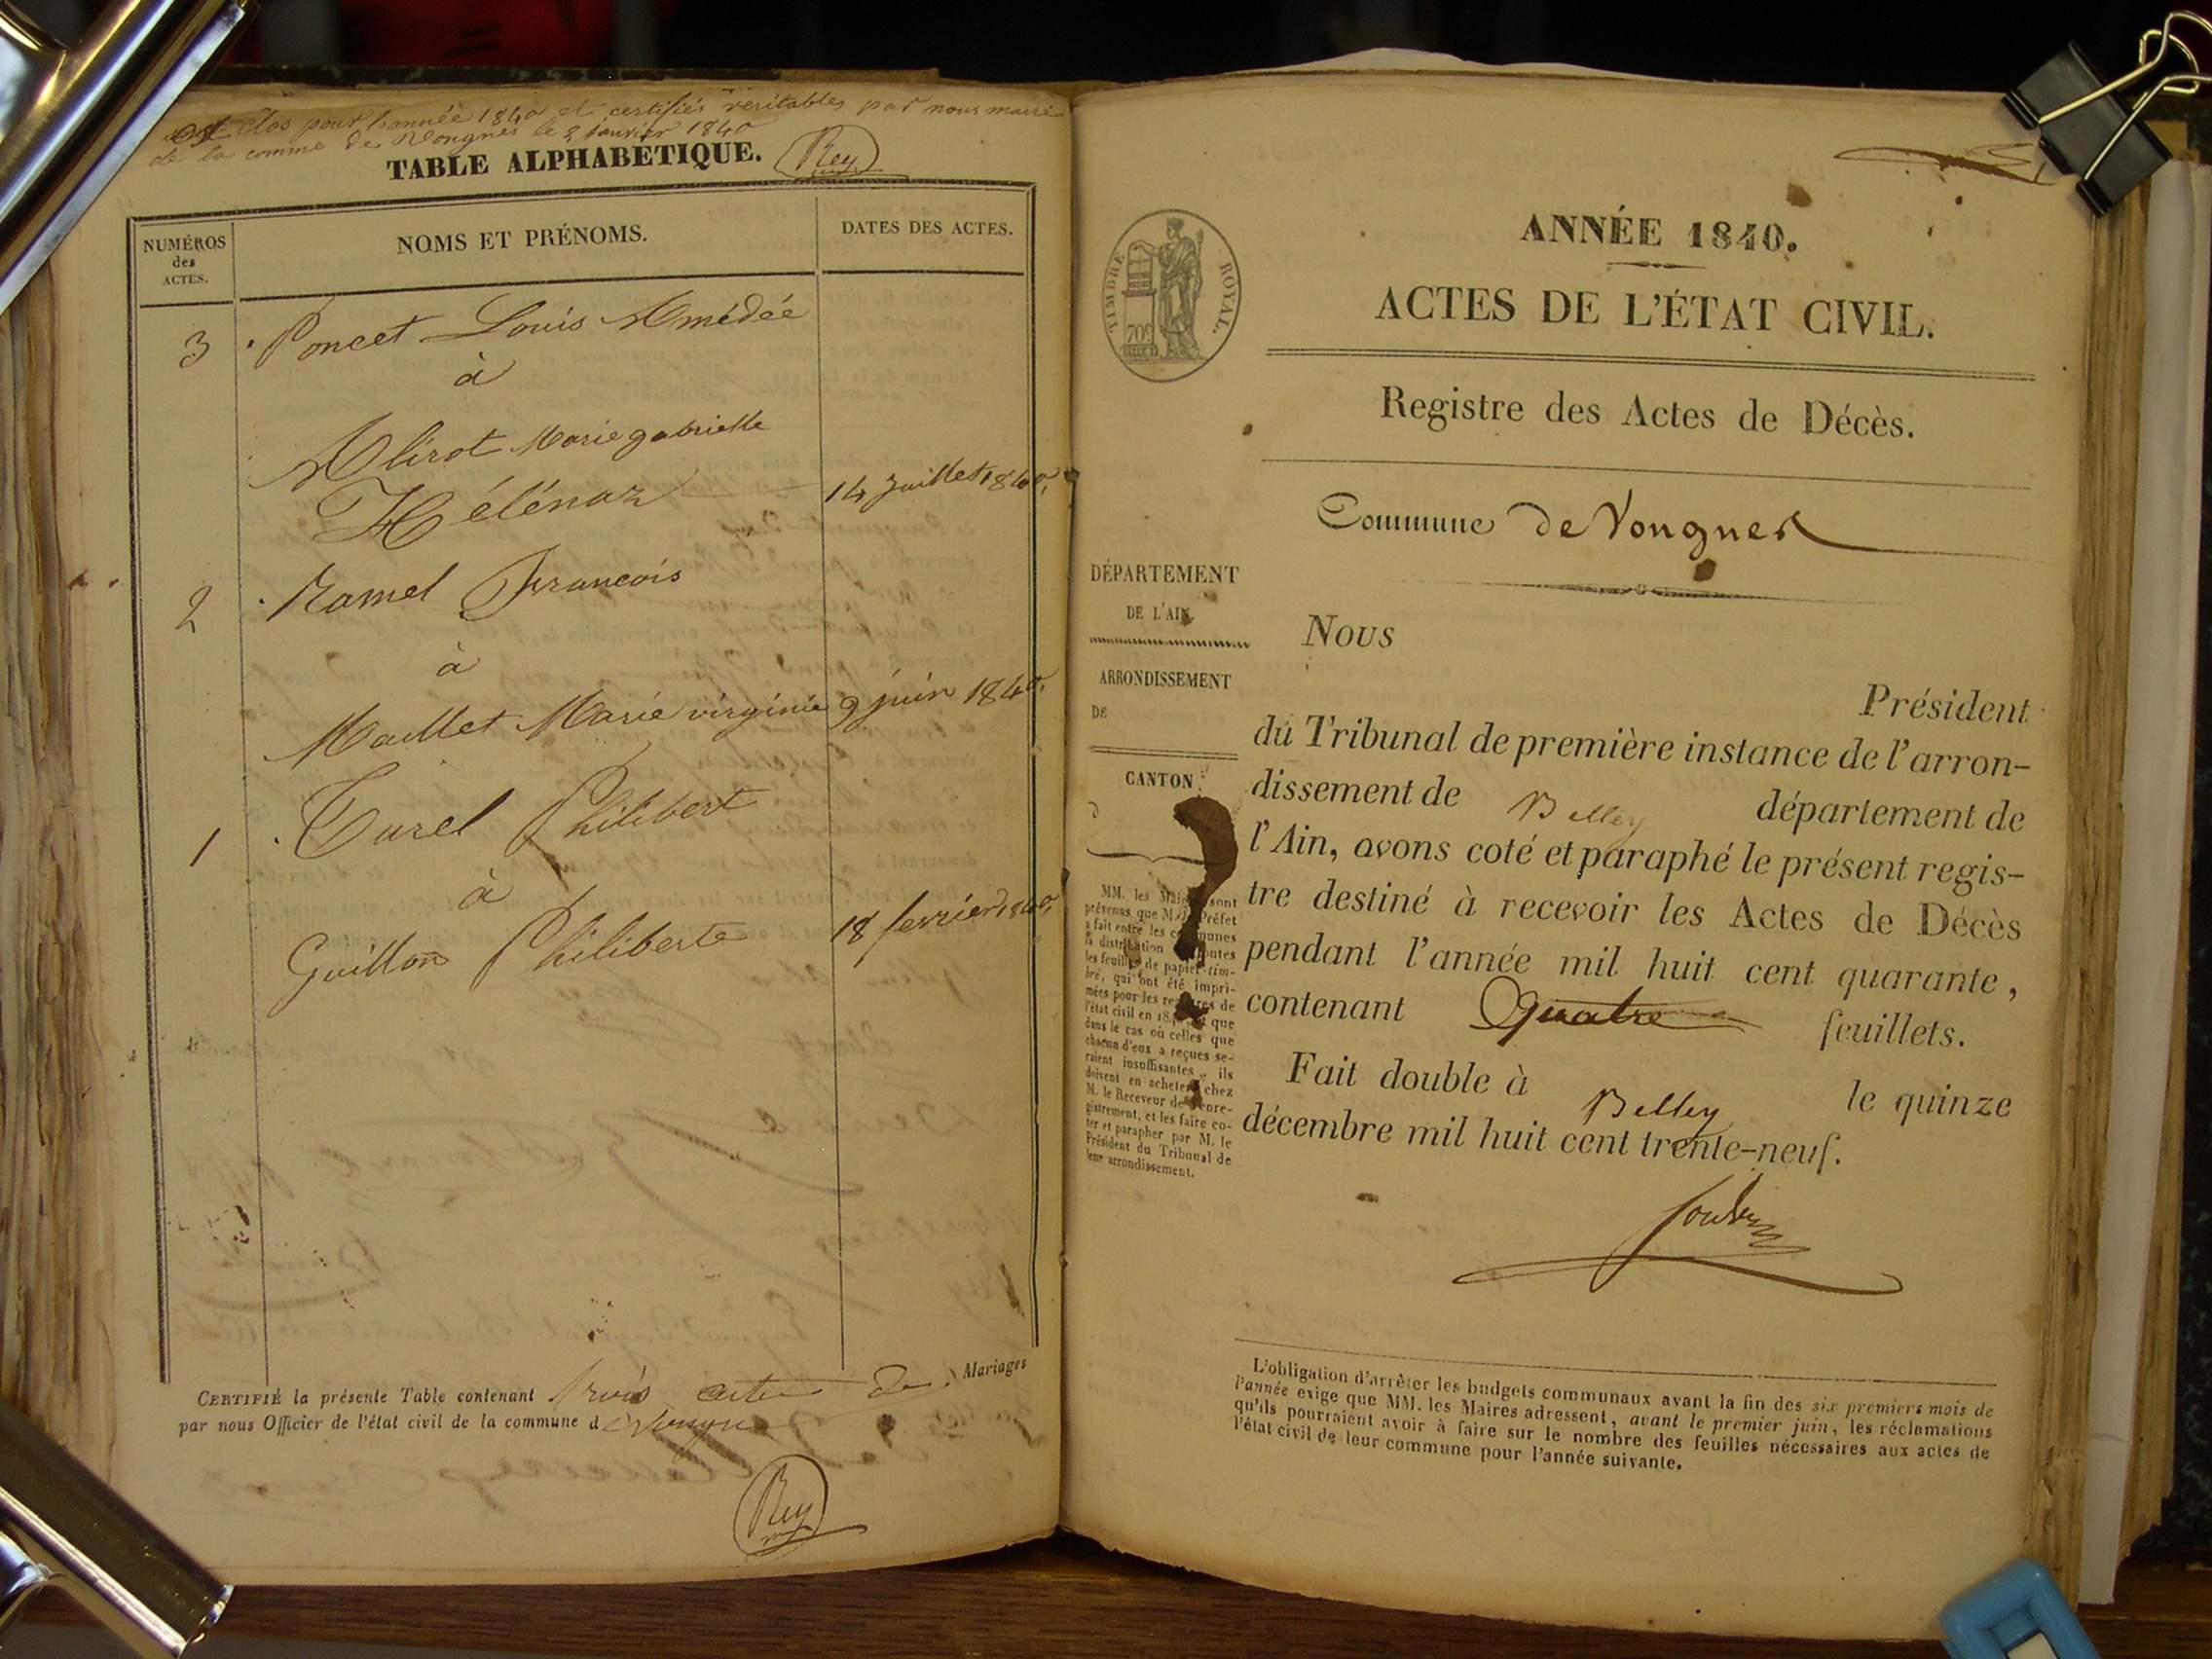 est clos pour l'année 1840 et certifiés véritables par nous maire
de la comme de Vongnes le 2 janvier 1840
TABLE ALPHABÉTIQUE.
Rey
NUMÉROS
des
ACTES.
NOMS ET PRÉNOMS.
DATES DES ACTES.
3 Poncet Louis Amédée
à
Marie gabrielle
14 juillet 1840.
2 Ramel Francois
à
Maillet Marie virginie 9 juin 1840.
1 Curel Philibert
à
Guillon Philiberte 18 fevrier 1840.
CERTIFIÉ la présente Table contenant trois actes de Mariages
par nous Officier de l'état civil de la commune d
Rey
TIMBRE ROYAL.
ANNÉE 1840.
ACTES DE L'ÉTAT CIVIL.
Registre des Actes de Décès.
Commune de Vongnes
DÉPARTEMENT
DE L'AIN.
ARRONDISSEMENT
DE
CANTON
MM. les Maires sont
prévenus que M. le Préfet
a fait entre les communes
la distribution de toutes
les feuilles de papier tim-
bré, qui ont été impri-
mées pour les registres de
l'état civil en 1840, et que
dans le cas où celles que
chacun d'eux a reçues se-
raient insuffisantes, ils
doivent en acheter chez
M. le Receveur de l'enre-
gistrement, et les faire co-
ter et parapher par M. le
Président du Tribunal de
leur arrondissement.
Nous
Président
du Tribunal de première instance de l'arron-
dissement de Belley département de
l'Ain, avons coté et paraphé le présent regis-
tre destiné à recevoir les Actes de Décès
pendant l'année mil huit cent quarante,
contenant Quatre feuillets.
Fait double à Belley le quinze
décembre mil huit cent trente-neuf.
L'obligation d'arrêter les budgets communaux avant la fin des six premiers mois de
l'année exige que MM. les Maires adressent, avant le premier juin, les réclamations
qu'ils pourraient avoir à faire sur le nombre des feuilles nécessaires aux actes de
l'état civil de leur commune pour l'année suivante.